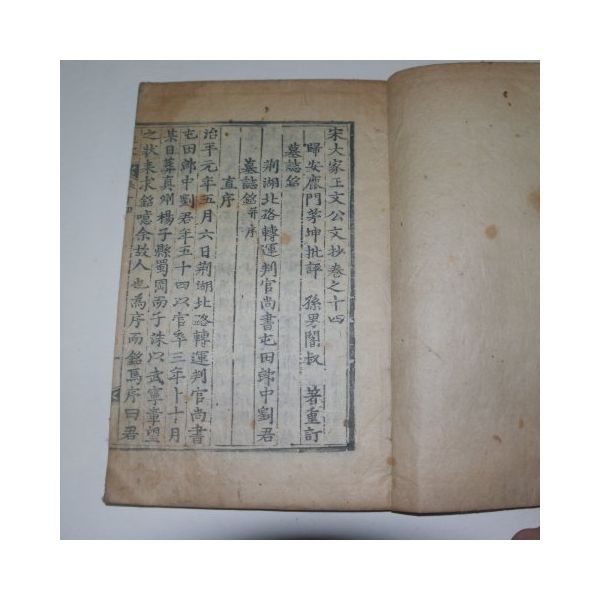 宋大家王文公文抄卷之十四
歸安鹿門茅坤批評 孫男闇叔 著重訂
墓誌銘
荆湖北路轉運判官尚書屯田郞中劉君
墓誌銘幷序
直序
治平元年五月六日荆湖北路轉運判官尚書
屯田郞中劉君年五十四以官卒三年十十月
某日葬真州楊子縣蜀岡而子洙以武寧章望
之狀來求銘噫余故人也爲序而銘焉序曰君